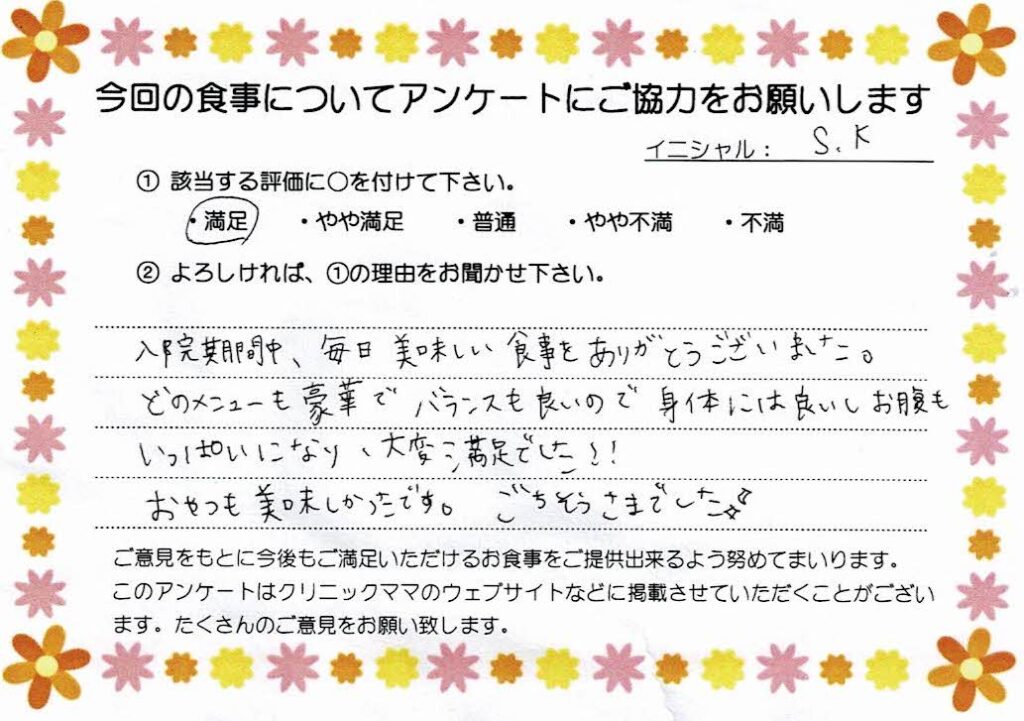 今回の食事についてアンケートにご協力をお願いします
イニシャル： S.K
① 該当する評価に○を付けて下さい。
・満足 ・やや満足 ・普通 ・やや不満 ・不満
② よろしければ、①の理由をお聞かせ下さい。
入院期間中、毎日美味しい食事をありがとうございました。
どのメニューも豪華でバランスも良いので身体には良いしお腹も
いっぱいになり、大変ご満足でした!!
おやつも美味しかったです。 ごちそうさまでした
ご意見をもとに今後もご満足いただけるお食事をご提供出来るよう努めてまいります。
このアンケートはクリニックママのウェブサイトなどに掲載させていただくことがござい
ます。たくさんのご意見をお願い致します。